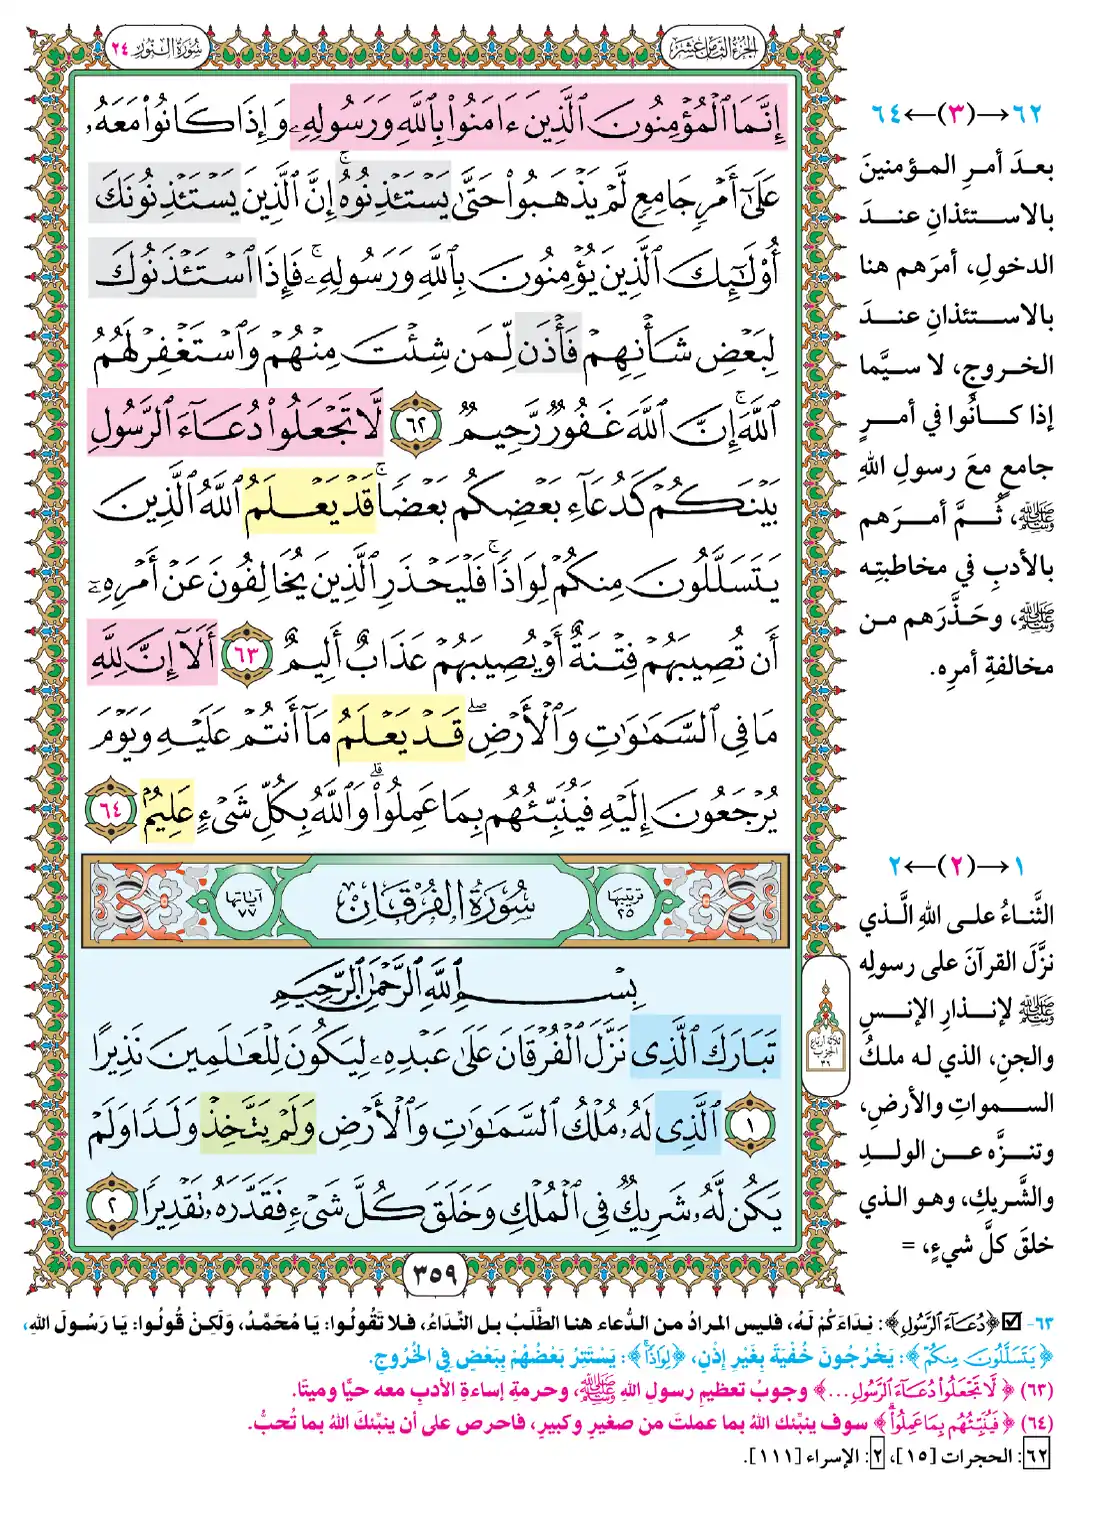 الجزء الثامن عشر
سورة النور ٢٤
إِنَّمَا ٱلْمُؤْمِنُونَ ٱلَّذِينَ ءَامَنُوا۟ بِٱللَّهِ وَرَسُولِهِۦ وَإِذَا كَانُوا۟ مَعَهُۥ
عَلَىٰٓ أَمْرٍ جَامِعٍ لَّمْ يَذْهَبُوا۟ حَتَّىٰ يَسْتَـْٔذِنُوهُ ۚ إِنَّ ٱلَّذِينَ يَسْتَـْٔذِنُونَكَ
أُو۟لَـٰٓئِكَ ٱلَّذِينَ يُؤْمِنُونَ بِٱللَّهِ وَرَسُولِهِۦ ۚ فَإِذَا ٱسْتَـْٔذَنُوكَ
لِبَعْضِ شَأْنِهِمْ فَأْذَن لِّمَن شِئْتَ مِنْهُمْ وَٱسْتَغْفِرْ لَهُمُ
ٱللَّهَ ۚ إِنَّ ٱللَّهَ غَفُورٌ رَّحِيمٌ ٦٢ لَّا تَجْعَلُوا۟ دُعَآءَ ٱلرَّسُولِ
بَيْنَكُمْ كَدُعَآءِ بَعْضِكُم بَعْضًا ۚ قَدْ يَعْلَمُ ٱللَّهُ ٱلَّذِينَ
يَتَسَلَّلُونَ مِنكُمْ لِوَاذًا ۚ فَلْيَحْذَرِ ٱلَّذِينَ يُخَالِفُونَ عَنْ أَمْرِهِۦٓ
أَن تُصِيبَهُمْ فِتْنَةٌ أَوْ يُصِيبَهُمْ عَذَابٌ أَلِيمٌ ٦٣ أَلَآ إِنَّ لِلَّهِ
مَا فِى ٱلسَّمَـٰوَٰتِ وَٱلْأَرْضِ ۖ قَدْ يَعْلَمُ مَآ أَنتُمْ عَلَيْهِ وَيَوْمَ
يُرْجَعُونَ إِلَيْهِ فَيُنَبِّئُهُم بِمَا عَمِلُوا۟ ۗ وَٱللَّهُ بِكُلِّ شَىْءٍ عَلِيمٌۢ ٦٤
ترتيبها ٢٥ سُورَةُ الْفُرْقَانِ آياتها ٧٧
بِسْمِ ٱللَّهِ ٱلرَّحْمَـٰنِ ٱلرَّحِيمِ
تَبَارَكَ ٱلَّذِى نَزَّلَ ٱلْفُرْقَانَ عَلَىٰ عَبْدِهِۦ لِيَكُونَ لِلْعَـٰلَمِينَ نَذِيرًا
١ ٱلَّذِى لَهُۥ مُلْكُ ٱلسَّمَـٰوَٰتِ وَٱلْأَرْضِ وَلَمْ يَتَّخِذْ وَلَدًا وَلَمْ
يَكُن لَّهُۥ شَرِيكٌ فِى ٱلْمُلْكِ وَخَلَقَ كُلَّ شَىْءٍ فَقَدَّرَهُۥ تَقْدِيرًا ٢
٣٥٩
٦٢→(٣)←٦٤
بعدَ أمرِ المؤمنينَ
بالاستئذانِ عندَ
الدخولِ، أمرَهم هنا
بالاستئذانِ عندَ
الخروجِ، لا سيَّما
إذا كانُوا في أمرٍ
جامعٍ معَ رسولِ اللهِ
ﷺ، ثُمَّ أمرَهم
بالأدبِ في مخاطبتِه
ﷺ، وحَذَّرَهم من
مخالفةِ أمرِه.
١→(٢)←٢
الثَّناءُ على اللهِ الَّذي
نزَّلَ القرآنَ على رسولِه
ﷺ لإنذارِ الإنسِ
والجنِ، الذي له ملكُ
السمواتِ والأرضِ،
وتنزَّه عن الولدِ
والشَّريكِ، وهو الذي
خلقَ كلَّ شيءٍ، =
ثلاثة أرباع
الحزب
٣٦
٦٣- ☑ ﴿دُعَآءَ ٱلرَّسُولِ﴾: نِدَاءَكُمْ لَهُ، فليس المرادُ من الدُّعاء هنا الطَّلَبُ بل النِّدَاءُ، فلا تَقُولُوا: يَا مُحَمَّدُ، وَلَكِنْ قُولُوا: يَا رَسُولَ اللهِ،
﴿يَتَسَلَّلُونَ مِنكُمْ﴾: يَخْرُجُونَ خُفْيَةً بِغَيْرِ إِذْنٍ، ﴿لِوَاذًا ۚ﴾: يَسْتَتِرُ بَعْضُهُمْ بِبَعْضٍ فِي الخُرُوجِ.
(٦٣) ﴿لَّا تَجْعَلُوا۟ دُعَآءَ ٱلرَّسُولِ ...﴾ وجوبُ تعظيمِ رسولِ اللهِ ﷺ، وحرمة إساءةِ الأدبِ معه حيًّا وميتًا.
(٦٤) ﴿فَيُنَبِّئُهُم بِمَا عَمِلُوا۟ ۗ﴾ سوف ينبِّئك اللهُ بما عملتَ من صغيرٍ وكبيرٍ، فاحرص على أن ينبِّئكَ اللهُ بما تُحبُّ.
٦٢: الحجرات [١٥]، ٢: الإسراء [١١١].